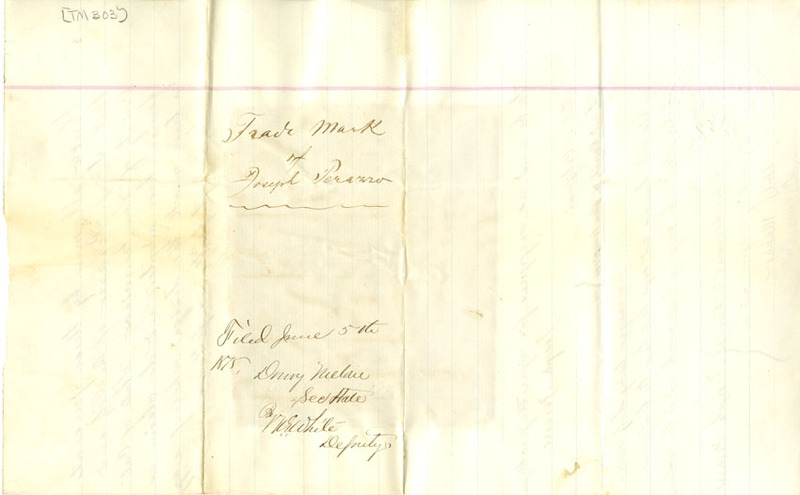 [TM 303]
Trade Mark
of
Joseph Perazzo
Filed June 5th
Drury Melone
Sec State
By
White
Deputy